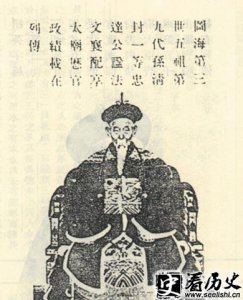 圖海第三
世五祖第
九代孫清
封一等忠
達公諡法
文襄配享
太廟歷官
政績載在
列傳
看历史
www.seelishi.cn